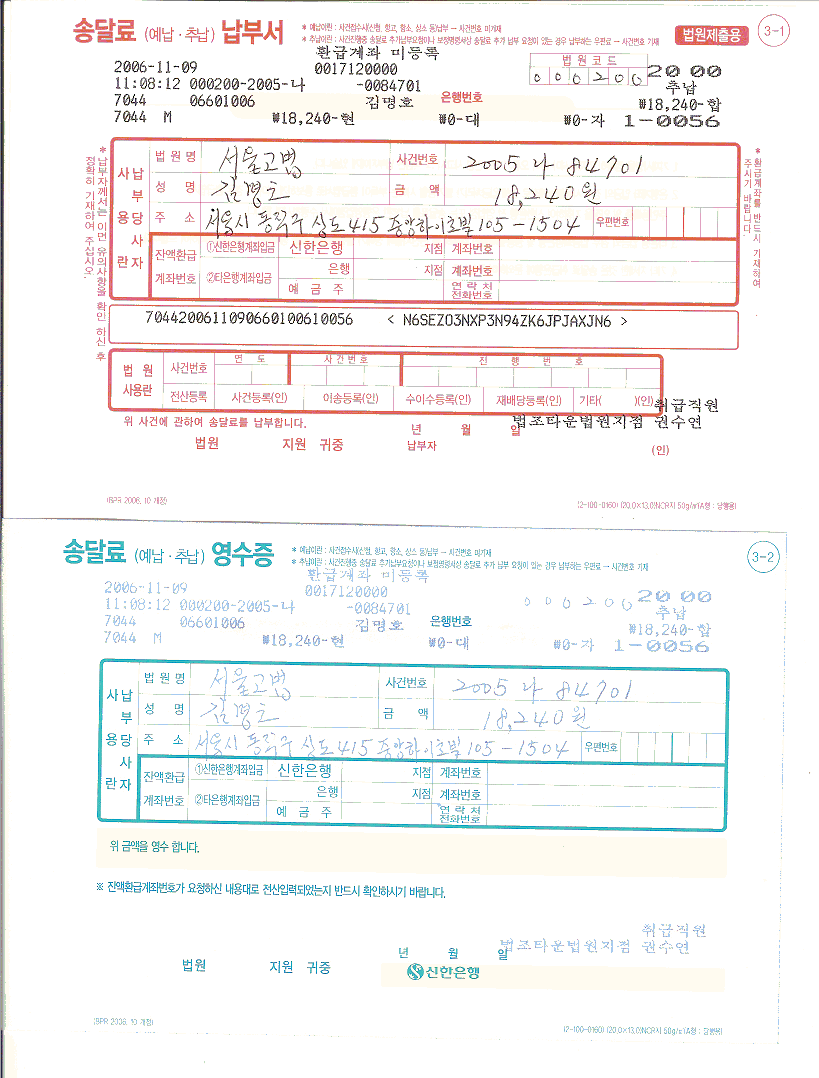 송달료 (예납·추납) 납부서
* 예납이란 : 사건접수시(신청, 항고, 항소, 상소 등)납부 → 사건번호 미기재
* 추납이란 : 사건진행중 송달료 추가납부요청이나 보정명령서상 송달료 추가 납부 요청이 있는 경우 납부하는 우편료 → 사건번호 기재
법원제출용
3-1
환급계좌 미등록
법원코드
2006-11-09 0017120000 000200 20 00
11:08:12 000200-2005-나 -0084701 추납
7044 06601006 김명호 은행번호 ₩18,240-합
7044 M ₩18,240-현 ₩0-대 ₩0-자 1-0056
* 납부자께서는 이면 유의사항을 확인 하신 후 정확히 기재하여 주십시오.
* 환급계좌를 반드시 기재하여 주시기 바랍니다.
납부당사자 사용란
법원명 서울고법 사건번호 2005 나 84701
성 명 김명호 금 액 18,240원
주 소 서울시 동작구 상도415 중앙하이츠빌 105-1504 우편번호
잔액환급 ①신한은행계좌입금 신한은행 지점 계좌번호
계좌번호 ②타은행계좌입금 은행 지점 계좌번호
예 금 주 연락처 전화번호
7044200611090660100610056 < N6SEZO3NXP3N94ZK6JPJAXJN6 >
법원 사용란
사건번호 연 도 사건번호 진 행 번 호
전산등록 사건등록(인) 이송등록(인) 수이수등록(인) 재배당등록(인) 기타( )(인)
취급직원
위 사건에 관하여 송달료를 납부합니다.
년 월 일
법조타운법원지점 권수연
법원 지원 귀중 납부자 (인)
(BPR 2006. 10 개정)
(2-100-0160) (20.0×13.0)NCR지 50g/㎡(A형 : 당행용)
송달료 (예납·추납) 영수증
* 예납이란 : 사건접수시(신청, 항고, 항소, 상소 등)납부 → 사건번호 미기재
* 추납이란 : 사건진행중 송달료 추가납부요청이나 보정명령서상 송달료 추가 납부 요청이 있는 경우 납부하는 우편료 → 사건번호 기재
3-2
환급계좌 미등록
2006-11-09 0017120000 000200 20 00
11:08:12 000200-2005-나 -0084701 추납
7044 06601006 김명호 은행번호 ₩18,240-합
7044 M ₩18,240-현 ₩0-대 ₩0-자 1-0056
납부당사자 사용란
법원명 서울고법 사건번호 2005 나 84701
성 명 김명호 금 액 18,240원
주 소 서울시 동작구 상도415 중앙하이츠빌 105-1504 우편번호
잔액환급 ①신한은행계좌입금 신한은행 지점 계좌번호
계좌번호 ②타은행계좌입금 은행 지점 계좌번호
예 금 주 연락처 전화번호
위 금액을 영수 합니다.
※ 잔액환급계좌번호가 요청하신 내용대로 전산입력되었는지 반드시 확인하시기 바랍니다.
취급직원
년 월 일
법조타운법원지점 권수연
법원 지원 귀중 신한은행
(BPR 2006. 10 개정)
(2-100-0160) (20.0×13.0)NCR지 50g/㎡(A형 : 당행용)